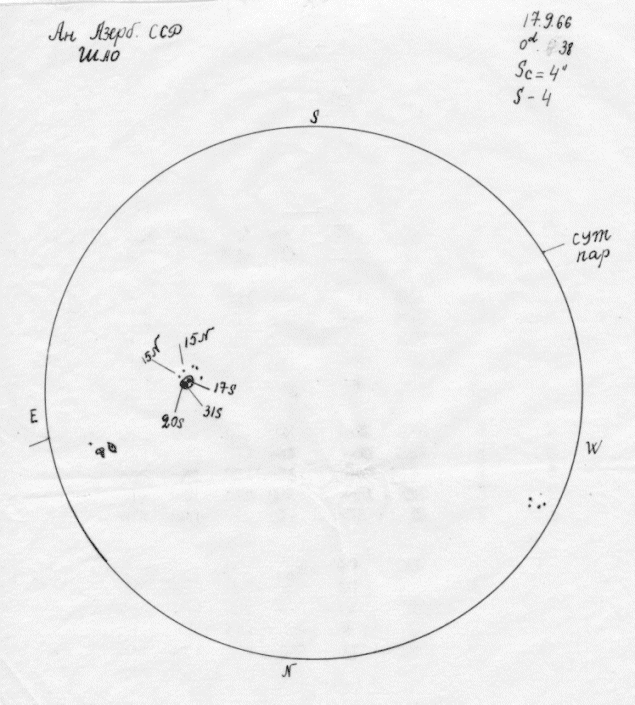 Ан Азерб. ССР
ШАО
17.9.66
0ᵈ. 38
Sc = 4"
S - 4
S
сут
пар
15N
15N
17S
31S
20S
E
W
N